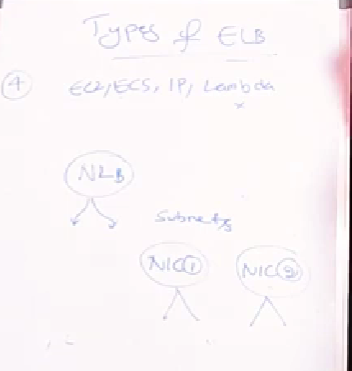 Types of ELB
4 EC2/ECS, IP, Lambda
x
NLB
Subnets
NIC 1 NIC 2